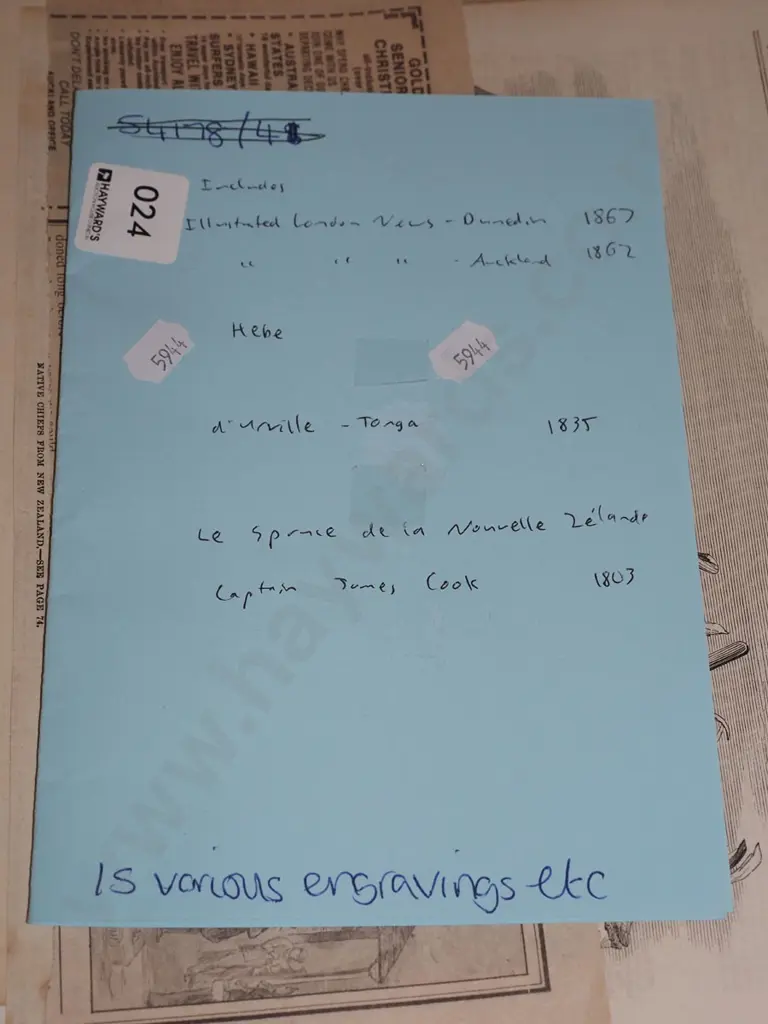 GOLD
SENIOR
CHRIST
AUSTRA
STATES
• HAWAII
• SYDNEY
SURFERS
ENJOY AL
TRAVEL WI
DON'T DELA
CALL TODAY
AUCKLAND OFFICE
54178/4
024
HAYWARD'S
Includes
Illustrated London News - Dunedin 1867
" " " - Auckland 1862
Hebe
5944
5944
d'urville - Tonga 1835
Le Spruce de la Nouvelle Zélande
Captain James Cook 1803
15 various engravings etc
NATIVE CHIEFS FROM NEW ZEALAND.—SEE PAGE 74.